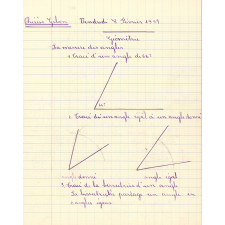 Vendredi
Géométrie
La mesure des angles
1. Tracé d'un angle de
2. Tracé d'un angle égal à un angle donné
angle donné angle égal
3. Tracé de la bissectrice d'un angle
La bissectrice partage un angle en
2 angles égaux